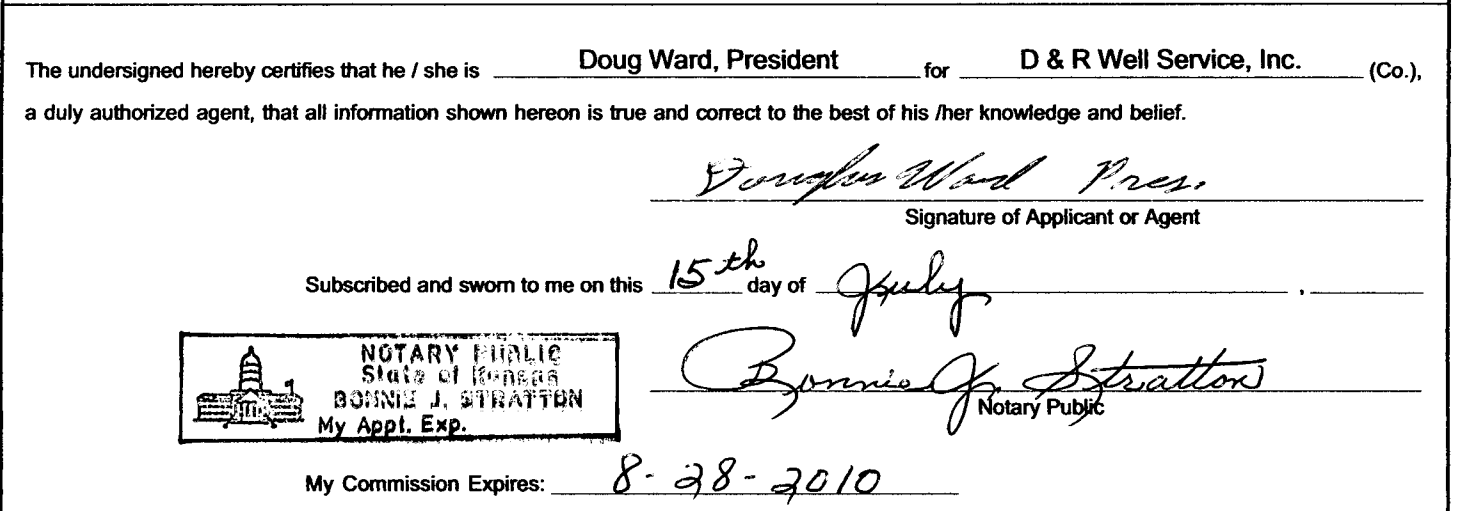 The undersigned hereby certifies that he / she is Doug Ward, President for D & R Well Service, Inc. (Co.),
a duly authorized agent, that all information shown hereon is true and correct to the best of his /her knowledge and belief.
Douglas Ward Pres.
Signature of Applicant or Agent
Subscribed and sworn to me on this 15th day of July ,
NOTARY PUBLIC
State of Kansas
BONNIE J. STRATTON
My Appt. Exp.
Bonnie J. Stratton
Notary Public
My Commission Expires: 8-28-2010